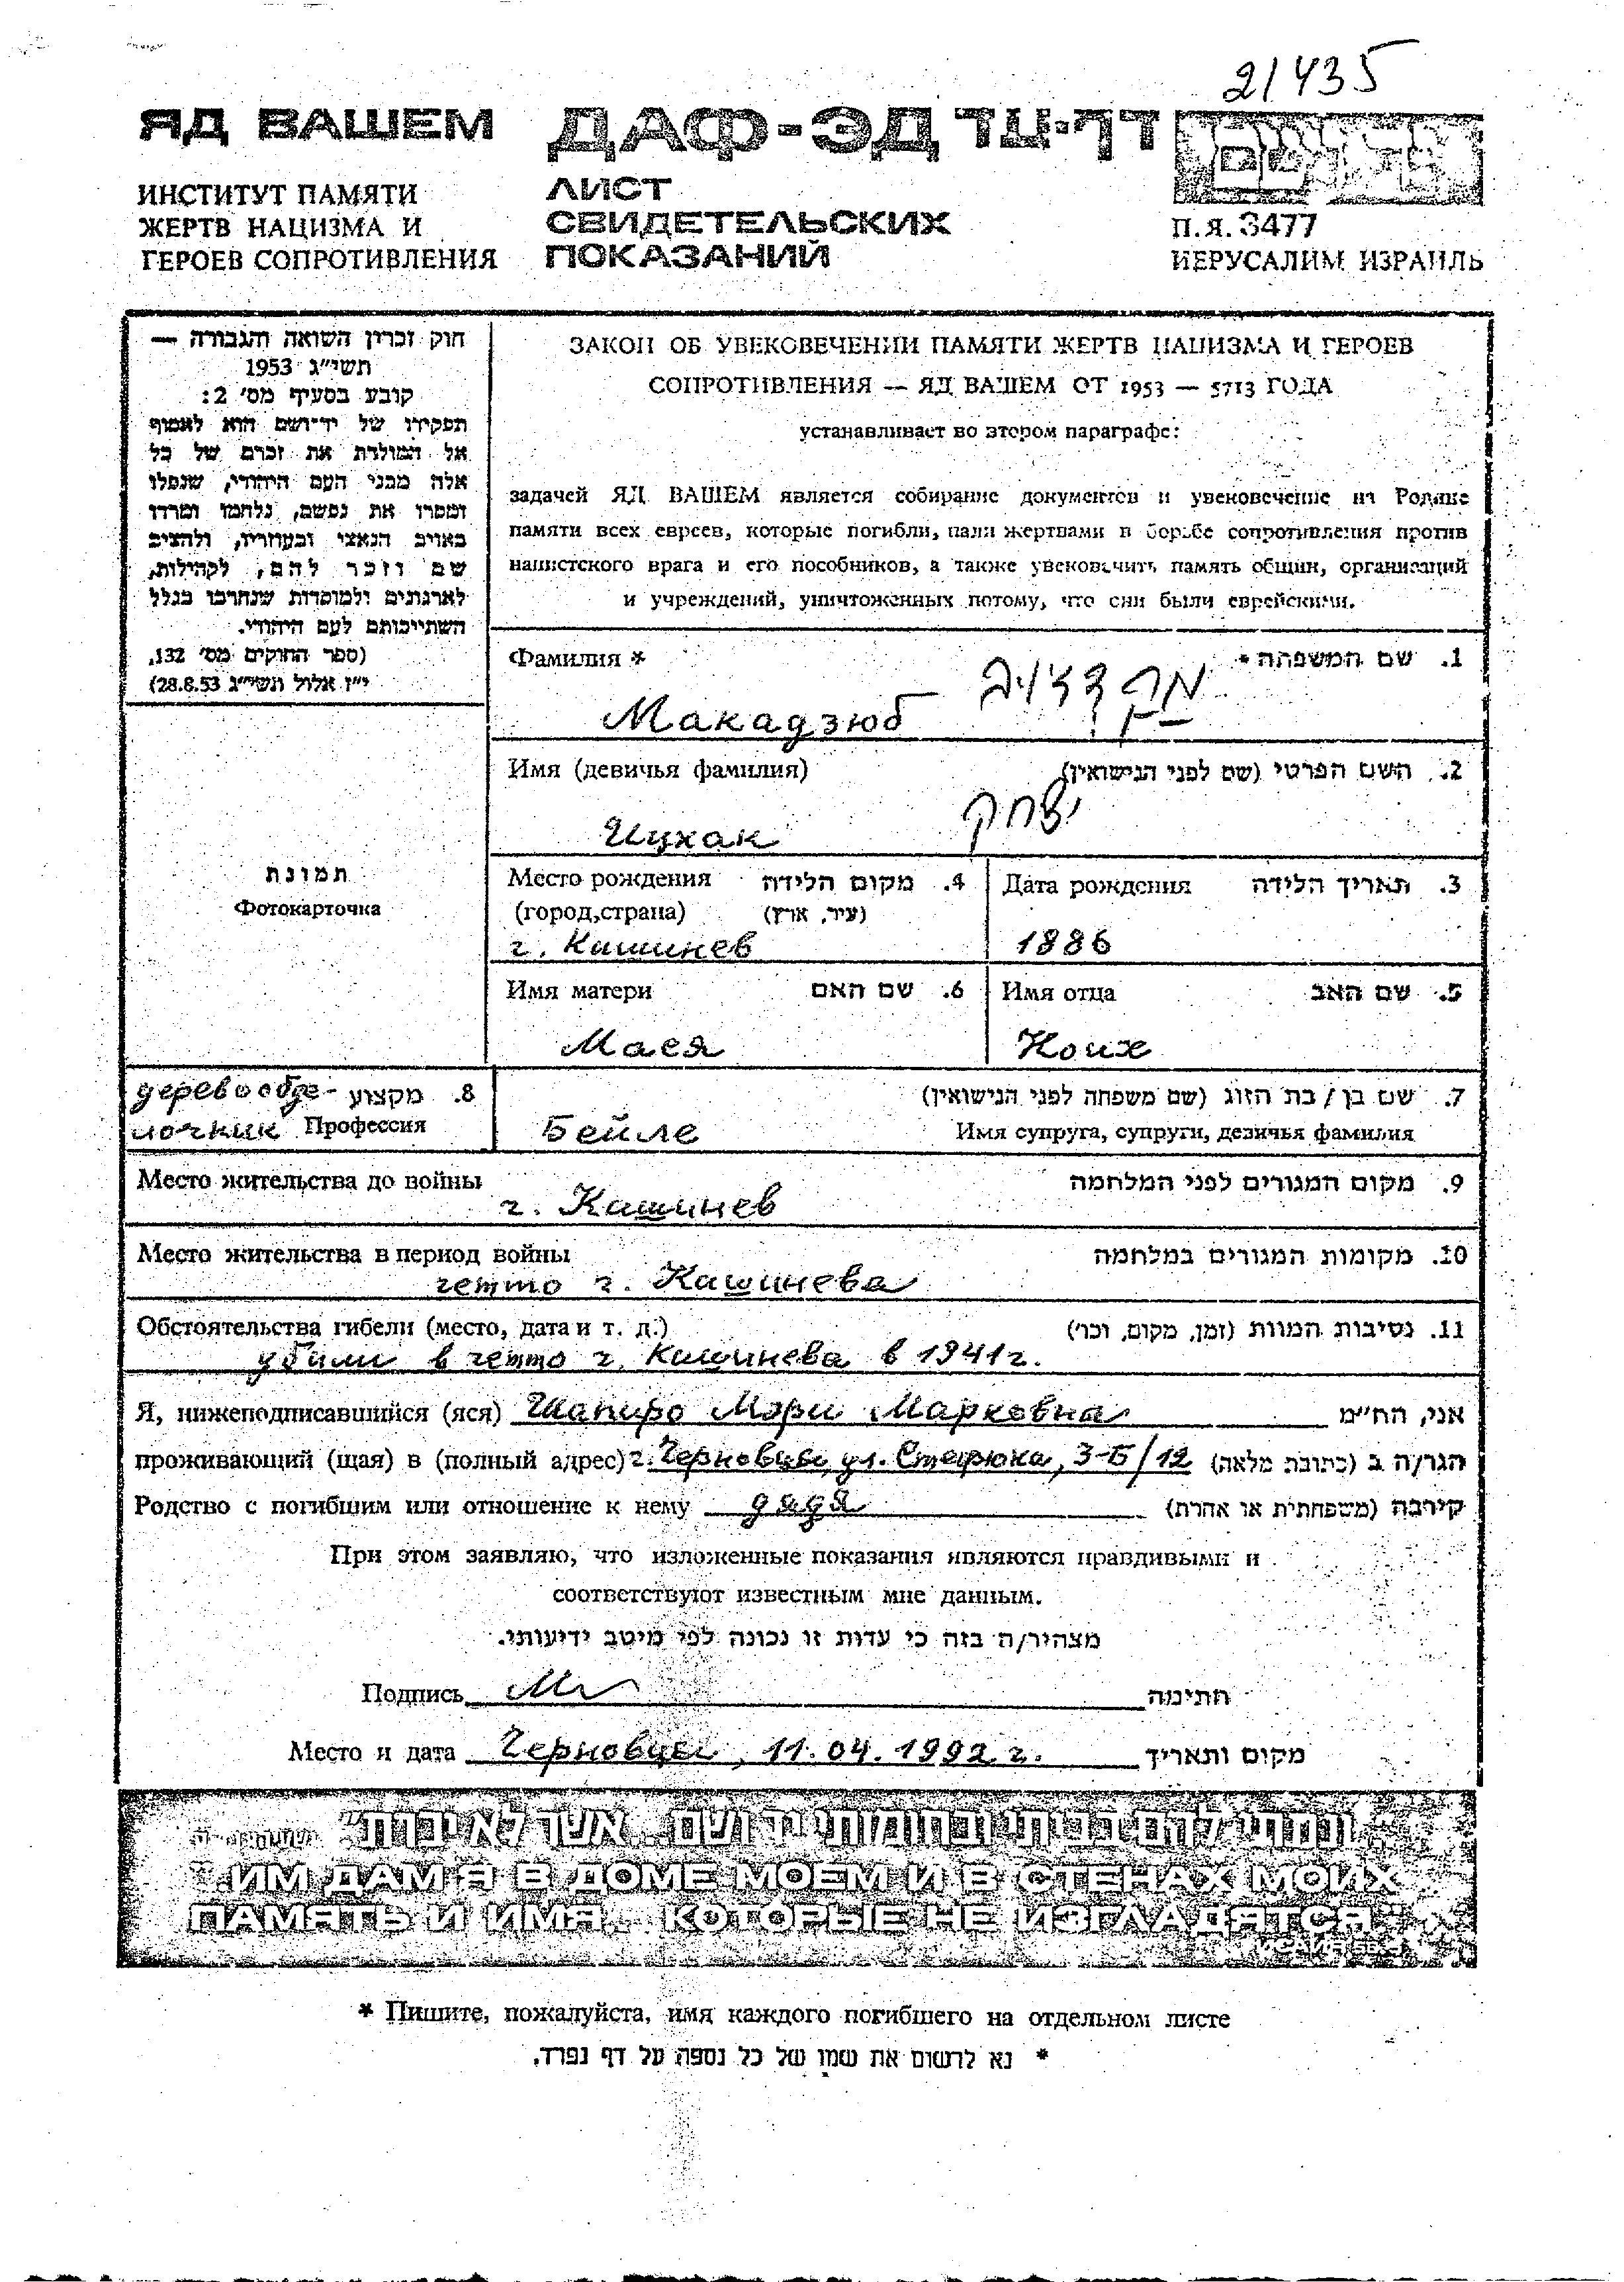 21435
ЯД ВАШЕМ ДАФ-ЭД דף-עד
ИНСТИТУТ ПАМЯТИ
ЖЕРТВ НАЦИЗМА И
ГЕРОЕВ СОПРОТИВЛЕНИЯ
ЛИСТ
СВИДЕТЕЛЬСКИХ
ПОКАЗАНИЙ
П.Я. 3477
ИЕРУСАЛИМ ИЗРАИЛЬ
חוק זכרון השואה והגבורה —
תשי״ג 1953
קובע בסעיף מס׳ 2:
תפקידו של יד-ושם הוא לאסוף
אל המולדת את זכרם של כל
אלה מבני העם היהודי, שנפלו
ומסרו את נפשם, נלחמו ומרדו
באויב הנאצי ובעוזריו, ולהציב
שם וזכר להם, לקהילות,
לארגונים ולמוסדות שנחרבו בגלל
השתייכותם לעם היהודי.
(ספר החוקים מס׳ 132,
י״ז אלול תשי״ג 28.8.53)
ЗАКОН ОБ УВЕКОВЕЧЕНИИ ПАМЯТИ ЖЕРТВ НАЦИЗМА И ГЕРОЕВ
СОПРОТИВЛЕНИЯ — ЯД ВАШЕМ ОТ 1953 — 5713 ГОДА
устанавливает во втором параграфе:
задачей ЯД ВАШЕМ является собирание документов и увековечение на Родине
памяти всех евреев, которые погибли, пали жертвами в борьбе сопротивления против
нацистского врага и его пособников, а также увековечить память общин, организаций
и учреждений, уничтоженных потому, что они были еврейскими.
Фамилия * 1. שם המשפחה *
Макадзюб
Имя (девичья фамилия) 2. השם הפרטי (שם לפני הנישואין)
Ицхак יצחק
תמונת
Фотокарточка
Место рождения 4. מקום הלידה
(город,страна) (עיר, ארץ)
г. Кишинев
Дата рождения 3. תאריך הלידה
1886
Имя матери 6. שם האם
Маея
Имя отца 5. שם האב
деревообде- 8. מקצוע
лочник Профессия
7. שם בן / בת הזוג (שם משפחה לפני הנישואין)
Бейле Имя супруга, супруги, девичья фамилия
Место жительства до войны 9. מקום המגורים לפני המלחמה
г. Кишинев
Место жительства в период войны 10. מקומות המגורים במלחמה
гетто г. Кишинева
Обстоятельства гибели (место, дата и т. д.) 11. נסיבות המוות (זמן, מקום, וכו׳)
убили в гетто г. Кишинева в 1941г.
Я, нижеподписавшийся (яся) Шапиро Мэри Марковна אני, הח״מ
проживающий (щая) в (полный адрес) г. Черновцы, ул. Стасюка, 3-Б/12 הגר/ה ב (כתובת מלאה)
Родство с погибшим или отношение к нему дядя קירבה (משפחתית או אחרת)
При этом заявляю, что изложенные показания являются правдивыми и
соответствуют известным мне данным.
מצהיר/ה בזה כי עדות זו נכונה לפי מיטב ידיעותי.
Подпись חתימה
Место и дата Черновцы, 11.04.1992 г. מקום ותאריך
„ונתתי להם בביתי ובחומותי יד ושם...אשר לא יכרת״
„ИМ ДАМ Я В ДОМЕ МОЕМ И В СТЕНАХ МОИХ
ПАМЯТЬ И ИМЯ... КОТОРЫЕ НЕ ИЗГЛАДЯТСЯ.”
* Пишите, пожалуйста, имя каждого погибшего на отдельном листе
* נא לרשום את שמו של כל נספה על דף נפרד.